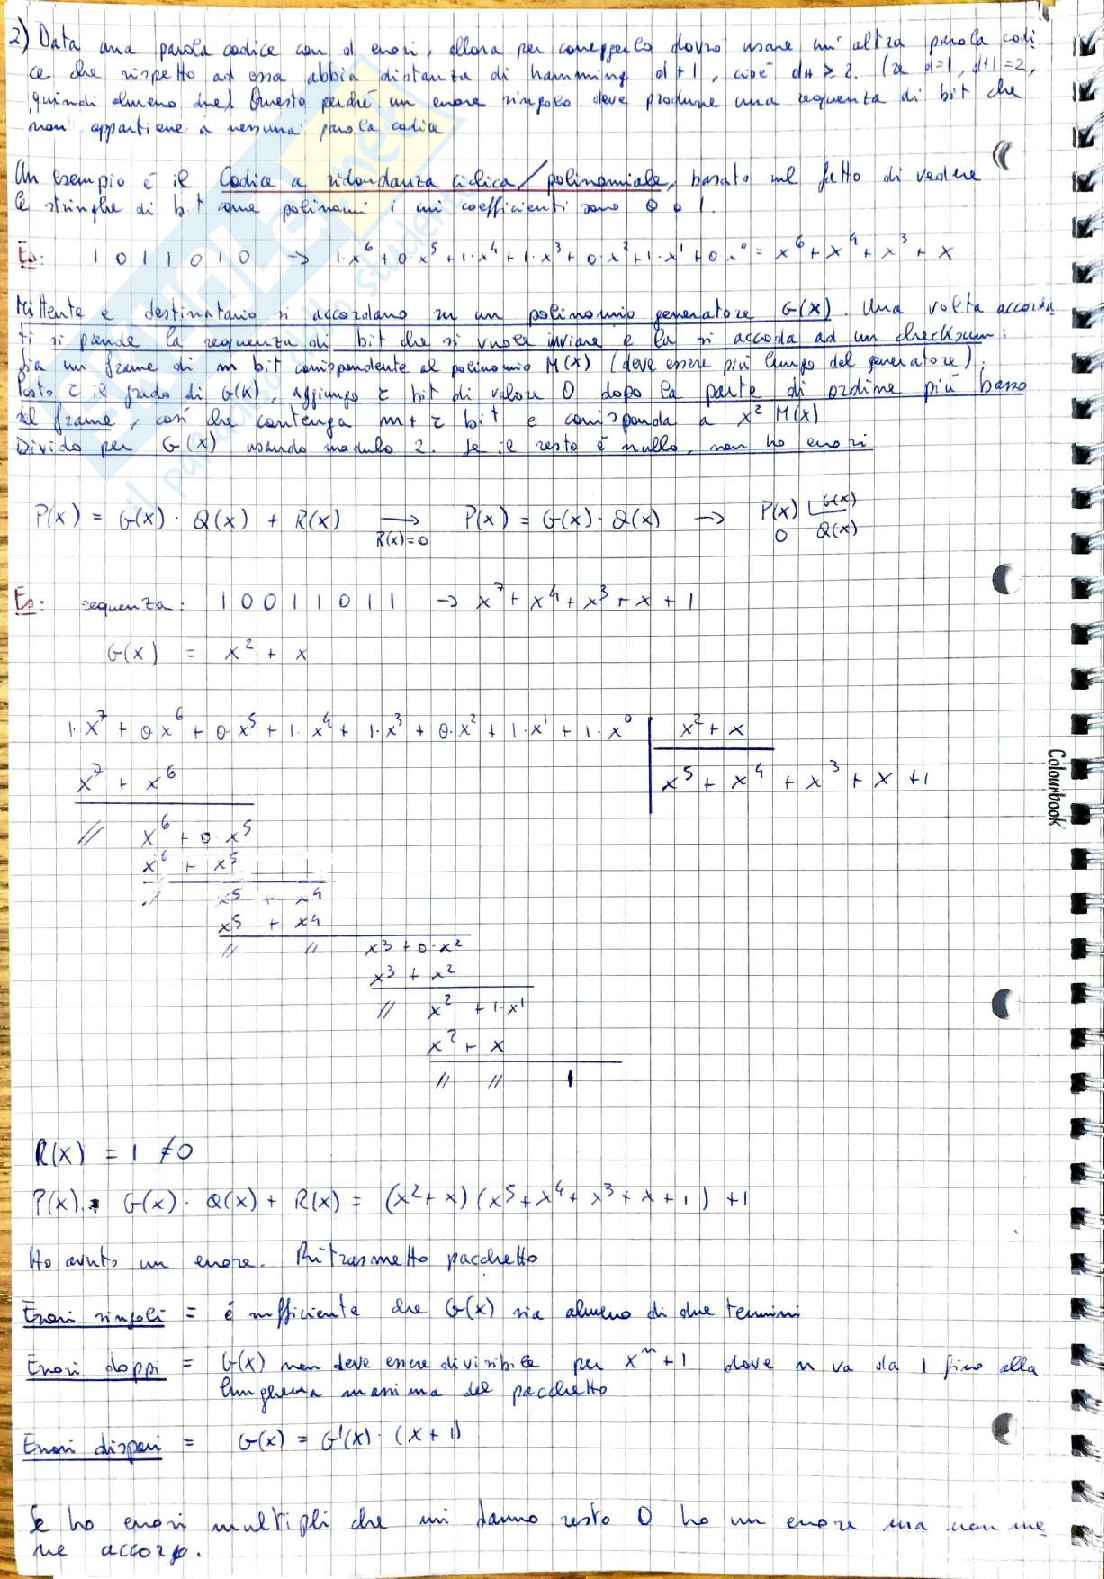 2) Data una parola codice con d errori, allora per correggerlo dovrò usare un'altra parola codi
ce che rispetto ad essa abbia distanza di hamming d+1, cioè dH ≥ 2. (se d=1, d+1=2,
quindi almeno due) Questo perché un errore singolo deve produrre una sequenza di bit che
non appartiene a nessuna parola codice
Un esempio è il Codice a ridondanza ciclica/polinomiale, basato sul fatto di vedere
le stringhe di bit come polinomi i cui coefficienti sono 0 o 1.
Es: 1 0 1 1 0 1 0 → 1·x⁶ + 0·x⁵ + 1·x⁴ + 1·x³ + 0·x² + 1·x¹ + 0·x⁰ = x⁶ + x⁴ + x³ + x
Mittente e destinatario si accordano su un polinomio generatore G(x). Una volta accorda
ti si prende la sequenza di bit che si vuole inviare e la si accoda ad un checksum:
Sia un frame di m bit corrispondente al polinomio M(x) (deve essere più lungo del generatore).
Posto r il grado di G(x), aggiungo r bit di valore 0 dopo la parte di ordine più basso
del frame, così che contenga m+r bit e corrisponda a x² M(x)
Divido per G(x) usando modulo 2. Se il resto è nullo, non ho errori
P(x) = G(x) · Q(x) + R(x) → R(x)=0 P(x) = G(x) · Q(x) → P(x) G(x)
0 Q(x)
Es: sequenza: 1 0 0 1 1 0 1 1 → x⁷ + x⁴ + x³ + x + 1
G(x) = x² + x
1·x⁷ + 0·x⁶ + 0·x⁵ + 1·x⁴ + 1·x³ + 0·x² + 1·x¹ + 1·x⁰ x² + x
x⁷ + x⁶ x⁵ + x⁴ + x³ + x + 1
Colourbook
// x⁶ + 0·x⁵
x⁶ + x⁵
// x⁵ + x⁴
x⁵ + x⁴
// // x³ + 0·x²
x³ + x²
// x² + 1·x¹
x² + x
// // 1
R(x) = 1 ≠ 0
P(x) = G(x) · Q(x) + R(x) = (x² + x) (x⁵ + x⁴ + x³ + x + 1) + 1
Ho avuto un errore. Ritrasmetto pacchetto
Errori singoli = è sufficiente che G(x) sia almeno di due termini
Errori doppi = G(x) non deve essere divisibile per xⁿ + 1 dove n va da 1 fino alla
lunghezza massima del pacchetto
Errori dispari = G(x) = G'(x) · (x + 1)
Se ho errori multipli che mi danno resto 0 ho un errore ma non me
ne accorgo.